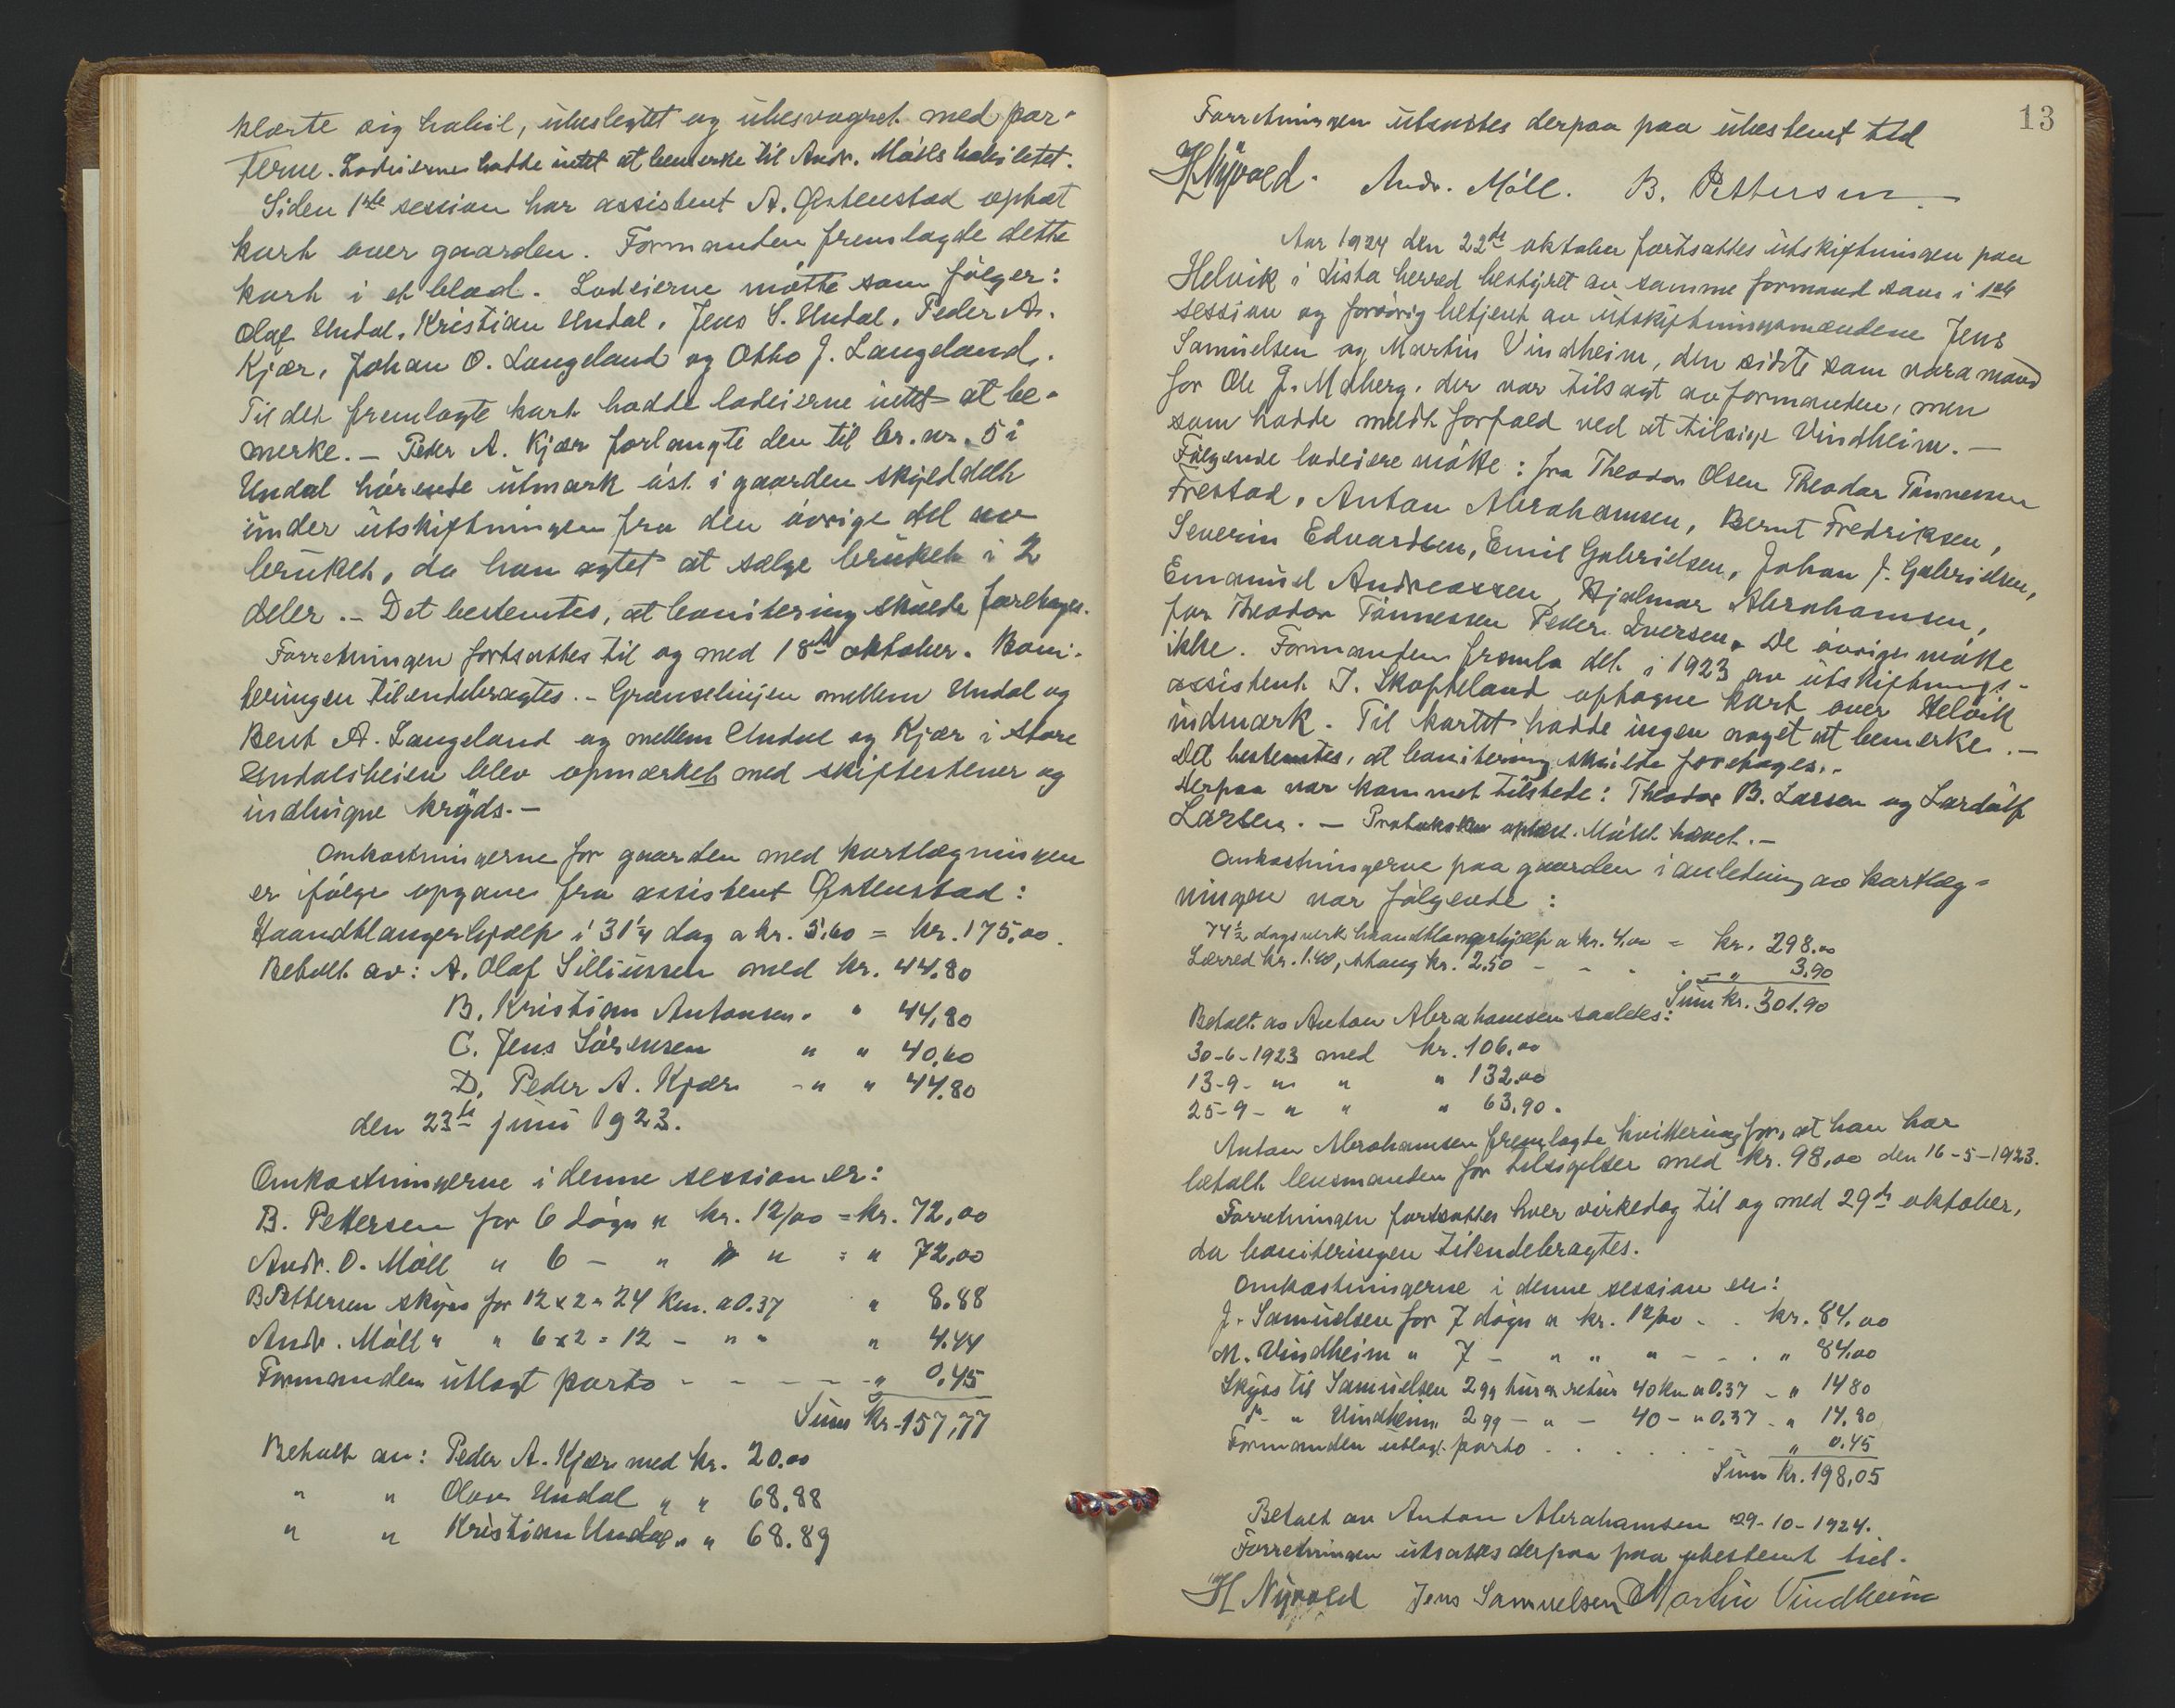 klærte sig habil, ubeslegtet og ubesvogret med par-
terne. Lodeierne hadde intet at bemerke til Andr. Mölls habilitet.
Siden 1ste session har assistent A. optat
kart over gaarden. Formanden fremlagde dette
kart i et blad. Lodeierne møtte som følger:
Olaf Undal, Kristian Undal, Jens S. Undal, Peder A.
Kjær, Johan O. Langeland og Otto J. Langeland.
Til det fremlagte kart hadde lodeierne intet at be-
merke. – Peder A. Kjær forlangte den til br. nr. 5 i
Undal hörende utmark öst i gaarden skyldddelt
under utskiftningen fra den övrige del av
bruket, da han agtet at sælge bruket i 2
deler. – Det bestemtes, at bonitering skulde foretages.
Forretningen fortsattes til og med 18de oktober. Boni-
teringen tilendebragtes. – Grænselinjen mellem Undal og
Bent A. Langeland og mellem Undal og Kjær i Store
Undalsheien blev opmerket med skiftestener og
indhugne kryds. –
Omkostningerne for gaarden med kartlægningen
er ifölge opgave fra assistent
Haandtlangerhjælp i 31¼ dag a kr. 5.60 = kr. 175,00.
Betalt av: A. Olaf Silliussen med kr. 44,80
B. Kristian Antonsen " " 44,80
C. Jens Sörensen " " 40,60
D. Peder A. Kjær – " " 44,80
den 23de juni 1923.
Omkostningerne i denne session er:
B. Pettersen for 6 dögn a kr. 12/00 = kr. 72,00
Andr. O. Möll " 6 – " " " = " 72,00
B Pettersen skyss for 12 x 2 = 24 km. a 0.37 " 8.88
Andr. Möll " " 6 x 2 = 12 – " " " 4.44
Formanden utlagt porto – – – – – " 0,45
Sum kr. 157,77
Betalt av: Peder A. Kjær med kr. 20.00
" " Olav Undal " " 68.88
" " Kristian Undal " " 68.89
13
Forretningen utsattes derpaa paa ubestemt tid
H Nyvold. Andr. Möll. B. Pettersen
Aar 1924 den 22de oktober fortsattes utskiftningen paa
Helvik i Lista herred bestyret av samme formand som i 1ste
session og forövrig betjent av utskiftningsmændene Jens
Samuelsen og Martin Vindheim, den sidste som varamand
for Ole J. Moberg, der var tilsagt av formanden, men
som hadde meldt forfald ved at tilsige Vindheim. –
Fölgende lodeiere mötte: for Theodor Olsen Theodor Tönnessen
Frestad, Anton Abrahamsen, Bernt Fredriksen,
Severin Edvardsen, Emil Gabrielsen, Johan J. Gabrielsen,
Emanuel Andreassen, Hjalmar Abrahamsen,
for Theodor Tönnessen Peder Iversen. De övrige mötte
ikke. Formanden fremla det i 1923 av utskiftnings-
assistent J. Skofteland optagne kart over Helvik
indmark. Til kartet hadde ingen noget at bemerke. –
Det bestemtes, at bonitering skulde foretages. –
Derpaa var kommet tilstede: Theodor B. Larsen og Lardulf
Larsen. – Protokollen oplæst. Mötet hævet. –
Omkostningerne paa gaarden i anledning av kartlæg-
ningen var fölgende:
74½ dagsverk haandtlangerhjælp a kr. 4,00 = kr. 298.00
Lærred kr. 1.40, kr. 2.50 – – – " 3.90
Sum kr. 301.90
Betalt av Anton Abrahamsen saaledes:
30-6-1923 med kr. 106,00
13-9- " " " 132.00
25-9- " " " 63,90.
Anton Abrahamsen fremlagte kvittering for, at han har
betalt lensmanden for tilsigelser med kr. 98,00 den 16-5-1923.
Forretningen fortsattes hver virkedag til og med 29de oktober,
da boniteringen tilendebragtes.
Omkostningerne i denne session er:
J. Samuelsen for 7 dögn a kr. 12/00 – . kr. 84.00
M. Vindheim " 7 – " " " – – . " 84.00
Skyss til Samuelsen 2 gg tur og retur 40 km a 0.37 – " 14 80
" Vindheim 2 gg – " – 40 – " 0.37 – " 14.80
Formanden utlagt porto . . . . . " 0.45
Sum kr. 198,05
Betalt av Anton Abrahamsen 29-10-1924.
Forretningen utsattes derpaa paa ubestemt tid.
H Nyvold Jens Samuelsen Martin Vindheim